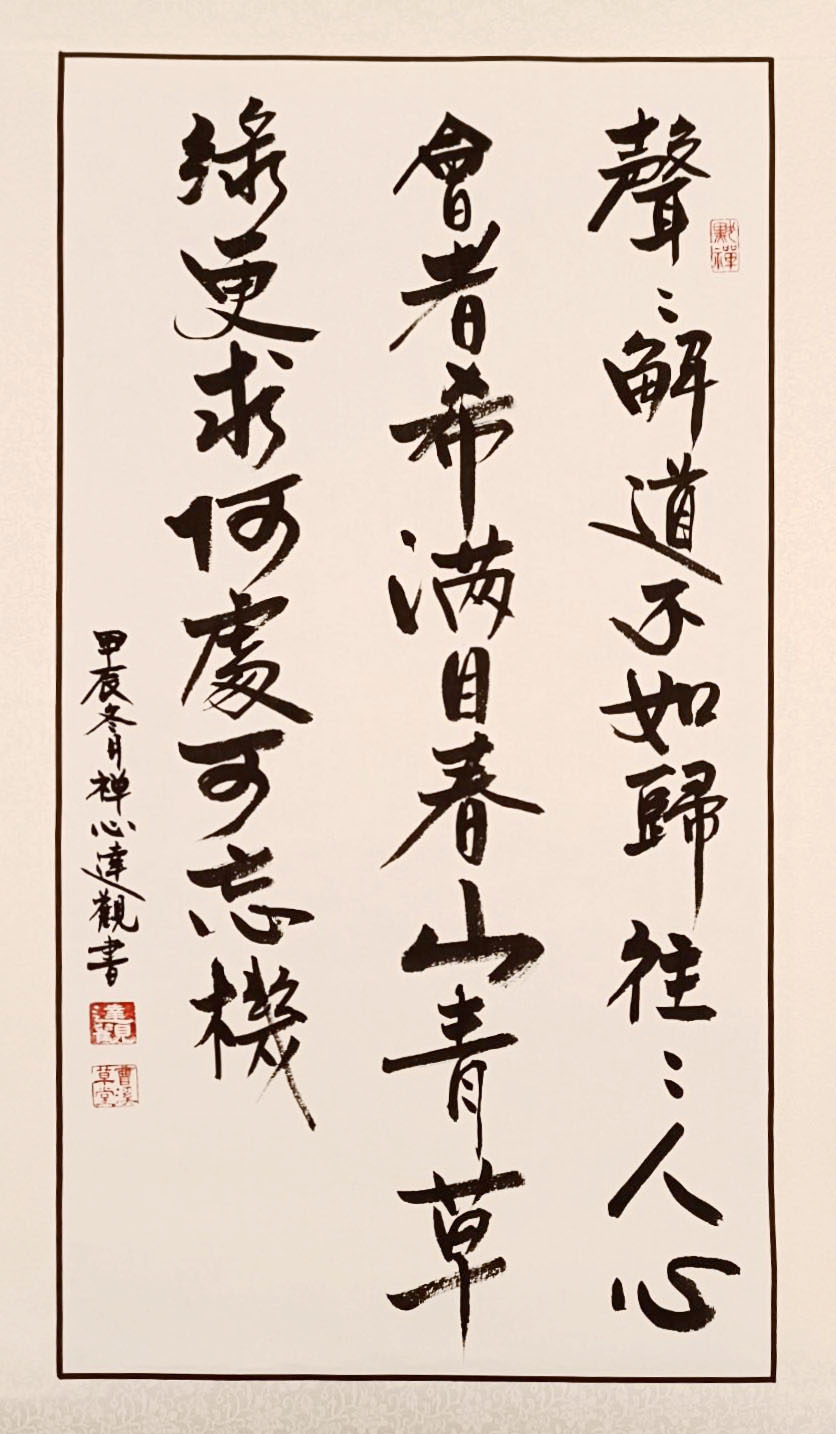 聲〻解道不如歸往〻人心
會者希满目春山青草
緑更求何處可忘機
甲辰冬月禅心達觀書
達觀
曹溪草堂